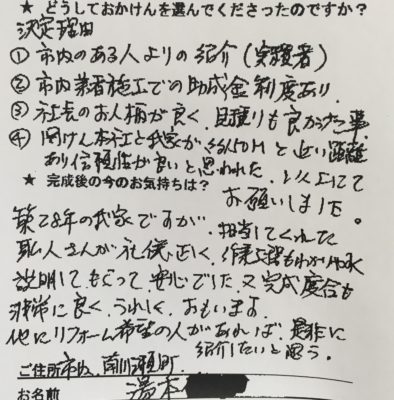 ★ どうしておかけんを選んでくださったのですか?
決定理由
① 市内のある人よりの紹介(実績者)
② 市内業者施工での助成金制度あり.
③ 社長のお人柄が良く、見積りも良かった事
④ 岡けん本社と我家が 約50M と近い距離
あり信頼性が良いと思われた. 以上にて
お願いしました。
★ 完成後の今のお気持ちは?
築28年の我家ですが、担当してくれた
職人さんが礼儀正しく、作業内容もわかりやすく
説明してもらって 安心でした 又 完成度合も
非常に良く、うれしく、おもいます
他にリフォーム希望の人があれば、是非に
紹介したいと思う。
ご住所 市内、南川瀬町
お名前 湯本